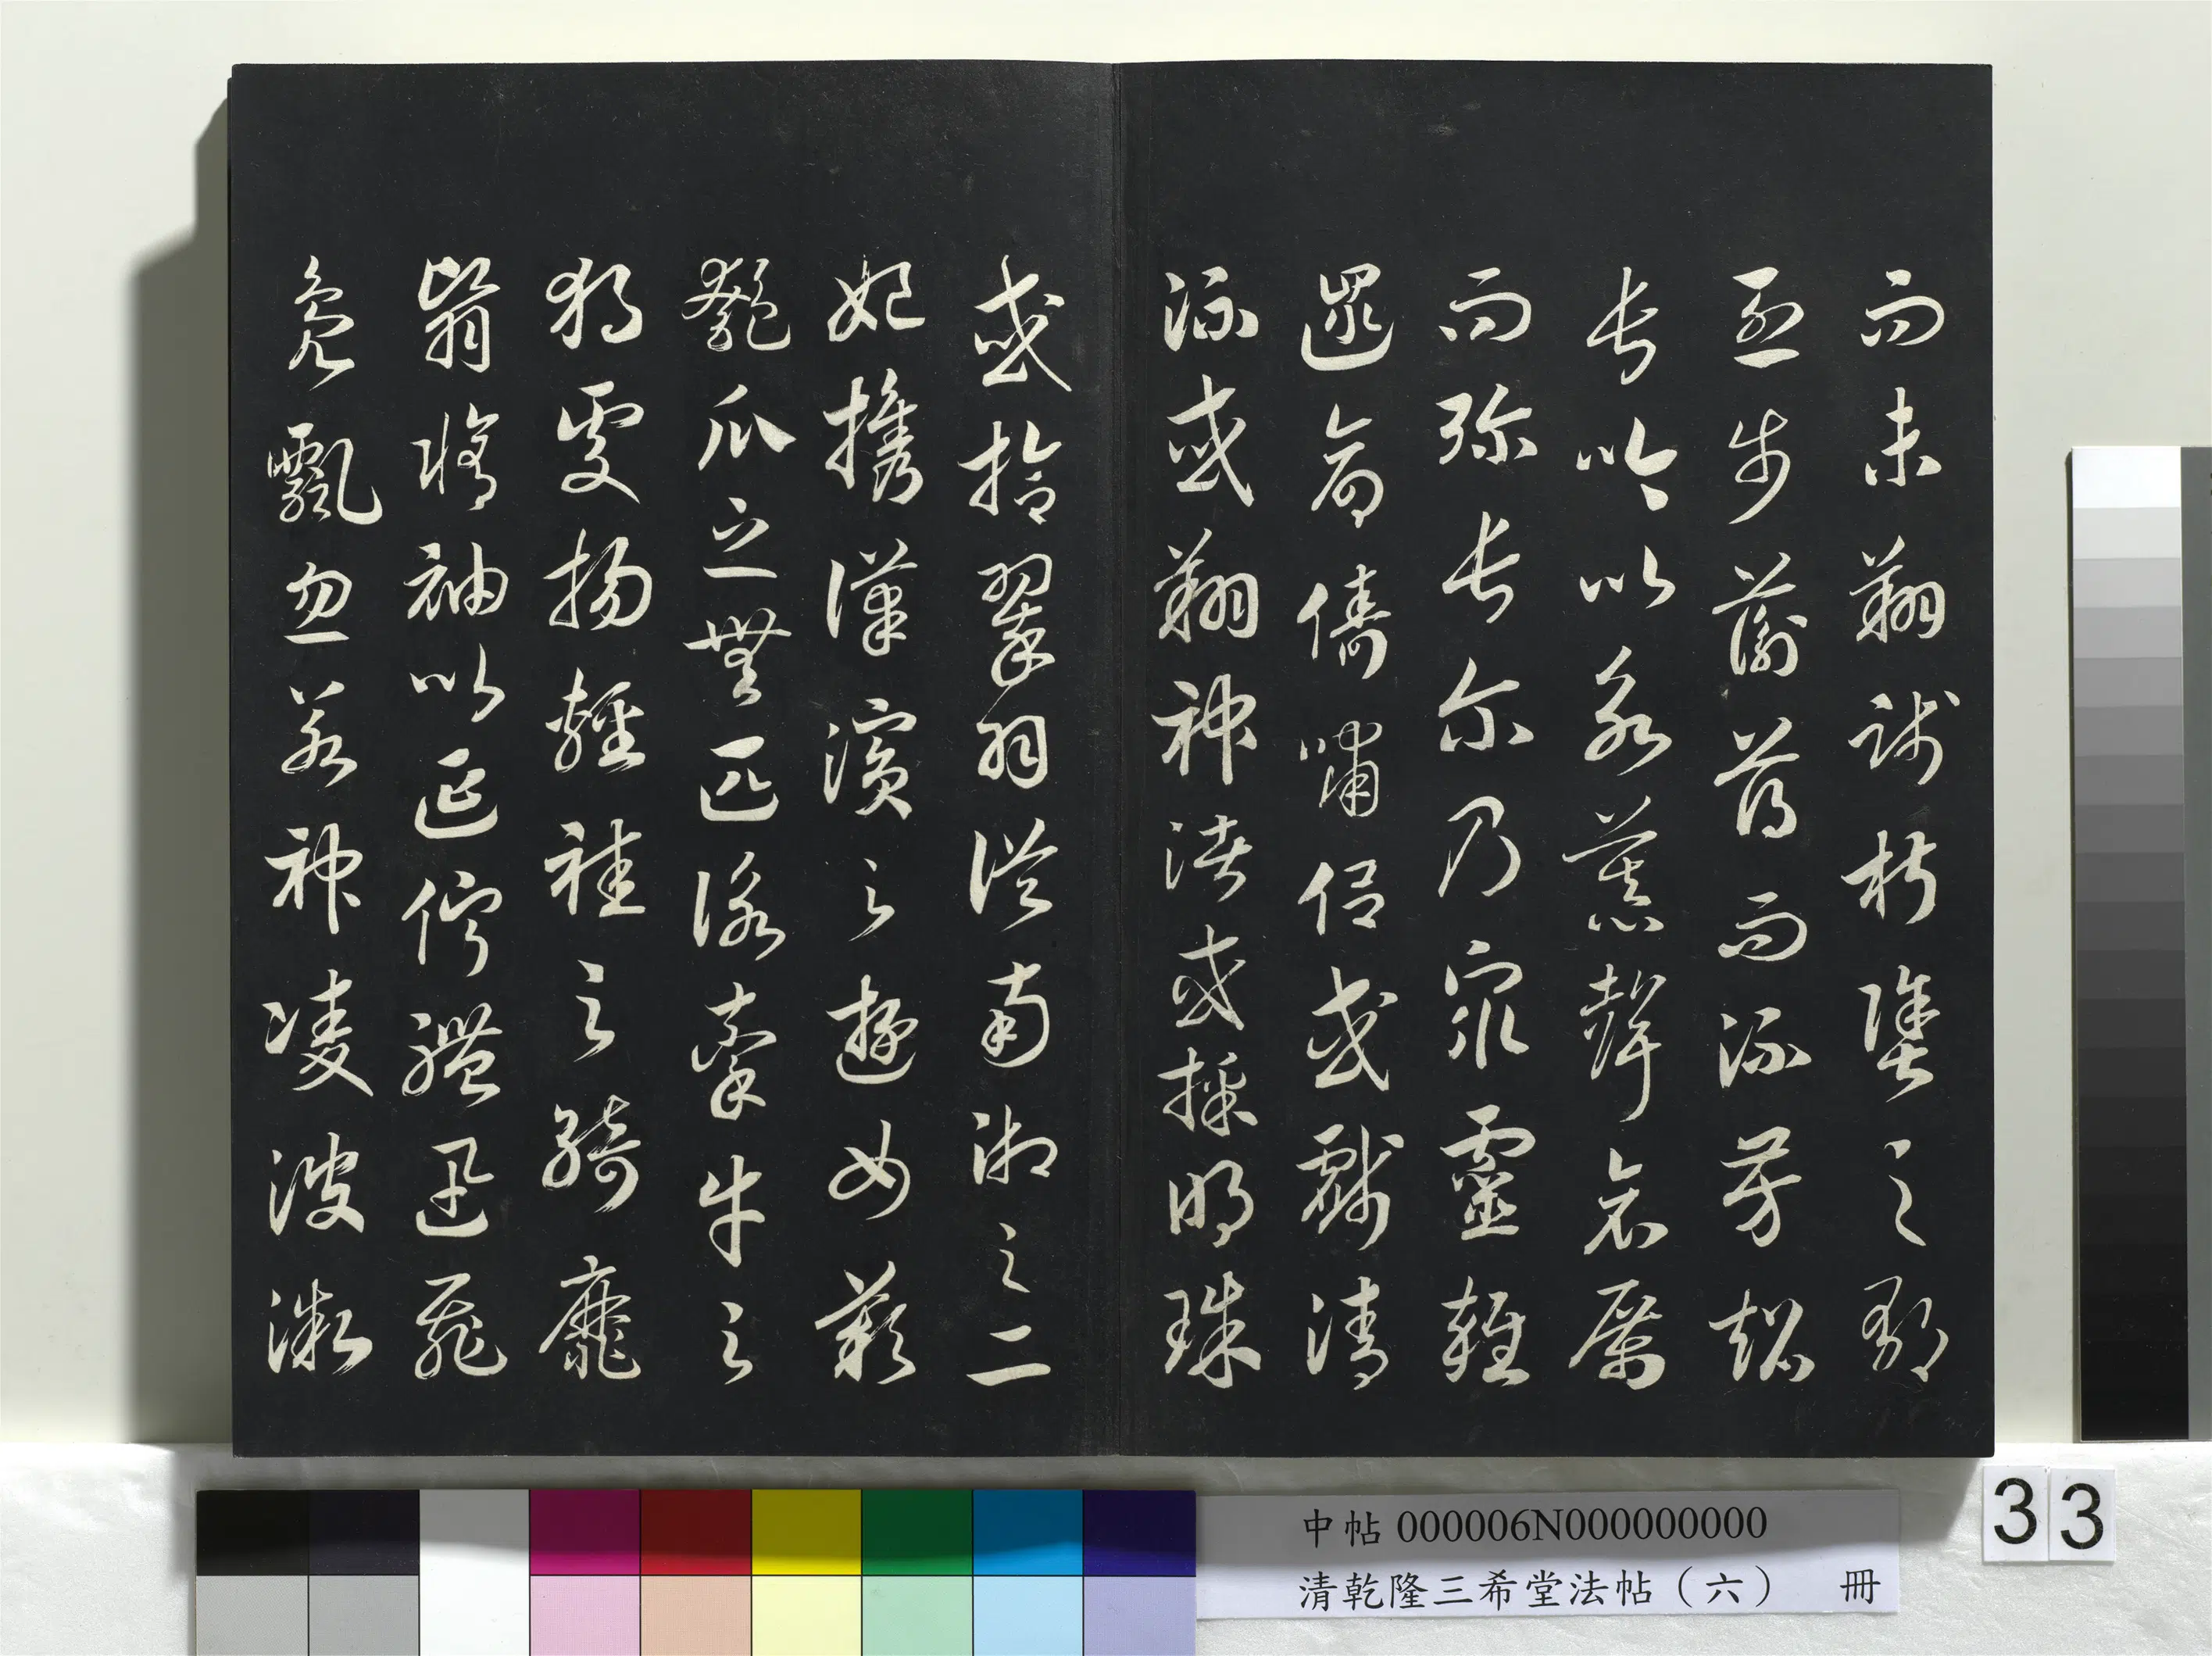 而未翔踐椒塗之郁
烈步蘅薄而流芳超
長吟以永慕聲哀厲
而弥長尔乃衆靈雜
遝命儔嘯侶或戲清
流或翔神渚或採明珠
或拾翠羽從南湘之二
妃携漢濱之遊女歎
匏瓜之無匹詠牽牛之
獨處揚輕袿之綺靡
翳脩袖以延佇體迅飛
鳧飄忽若神凌波微
中帖 000006N000000000
清乾隆三希堂法帖（六） 冊
33